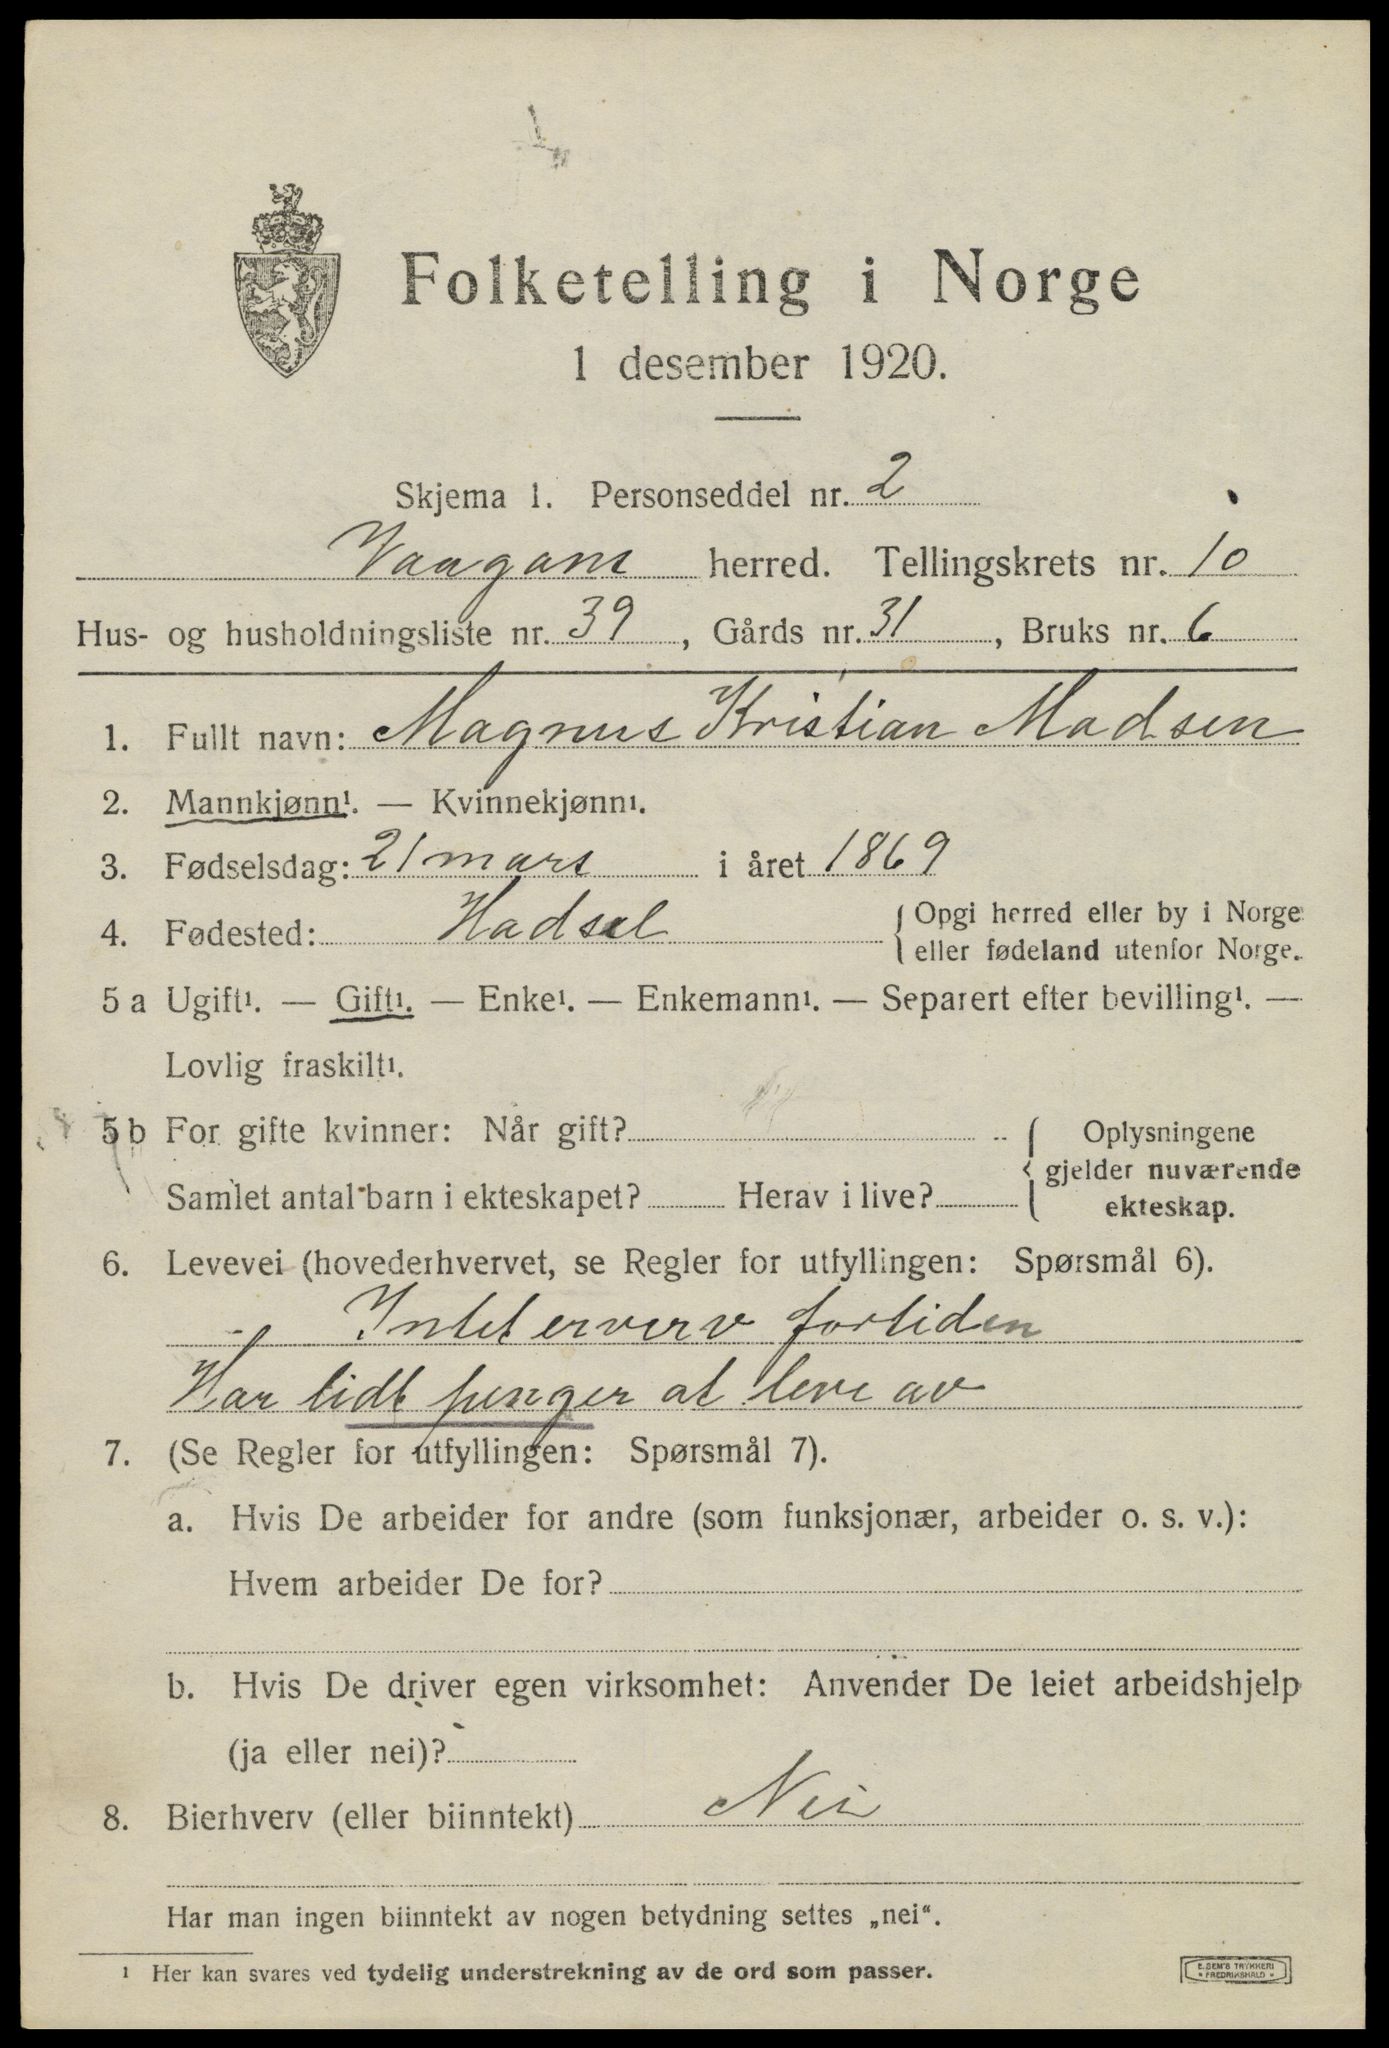 Folketelling i Norge
1 desember 1920.
Skjema 1. Personseddel nr. 2
Vaagans herred. Tellingskrets nr. 10
Hus- og husholdningsliste nr. 39, Gårds nr. 31, Bruks nr. 6
1. Fullt navn: Magnus Kristian Madsen
2. Mannkjønn¹. — Kvinnekjønn¹.
3. Fødselsdag: 21 mars i året 1869
4. Fødested: Hadsel { Opgi herred eller by i Norge
eller fødeland utenfor Norge.
5 a Ugift¹. — Gift¹. — Enke¹. — Enkemann¹. — Separert efter bevilling¹. —
Lovlig fraskilt¹.
5 b For gifte kvinner: Når gift? { Oplysningene
gjelder nuværende
Samlet antal barn i ekteskapet? Herav i live? ekteskap.
6. Levevei (hovederhvervet, se Regler for utfyllingen: Spørsmål 6).
Intet erverv fortiden
Har lidt penger at leve av
7. (Se Regler for utfyllingen: Spørsmål 7).
a. Hvis De arbeider for andre (som funksjonær, arbeider o. s. v.):
Hvem arbeider De for?
b. Hvis De driver egen virksomhet: Anvender De leiet arbeidshjelp
(ja eller nei)?
8. Bierhverv (eller biinntekt) Nei
Har man ingen biinntekt av nogen betydning settes „nei“.
¹ Her kan svares ved tydelig understrekning av de ord som passer.
E. SEM'S TRYKKERI
* FREDRIKSHALD *